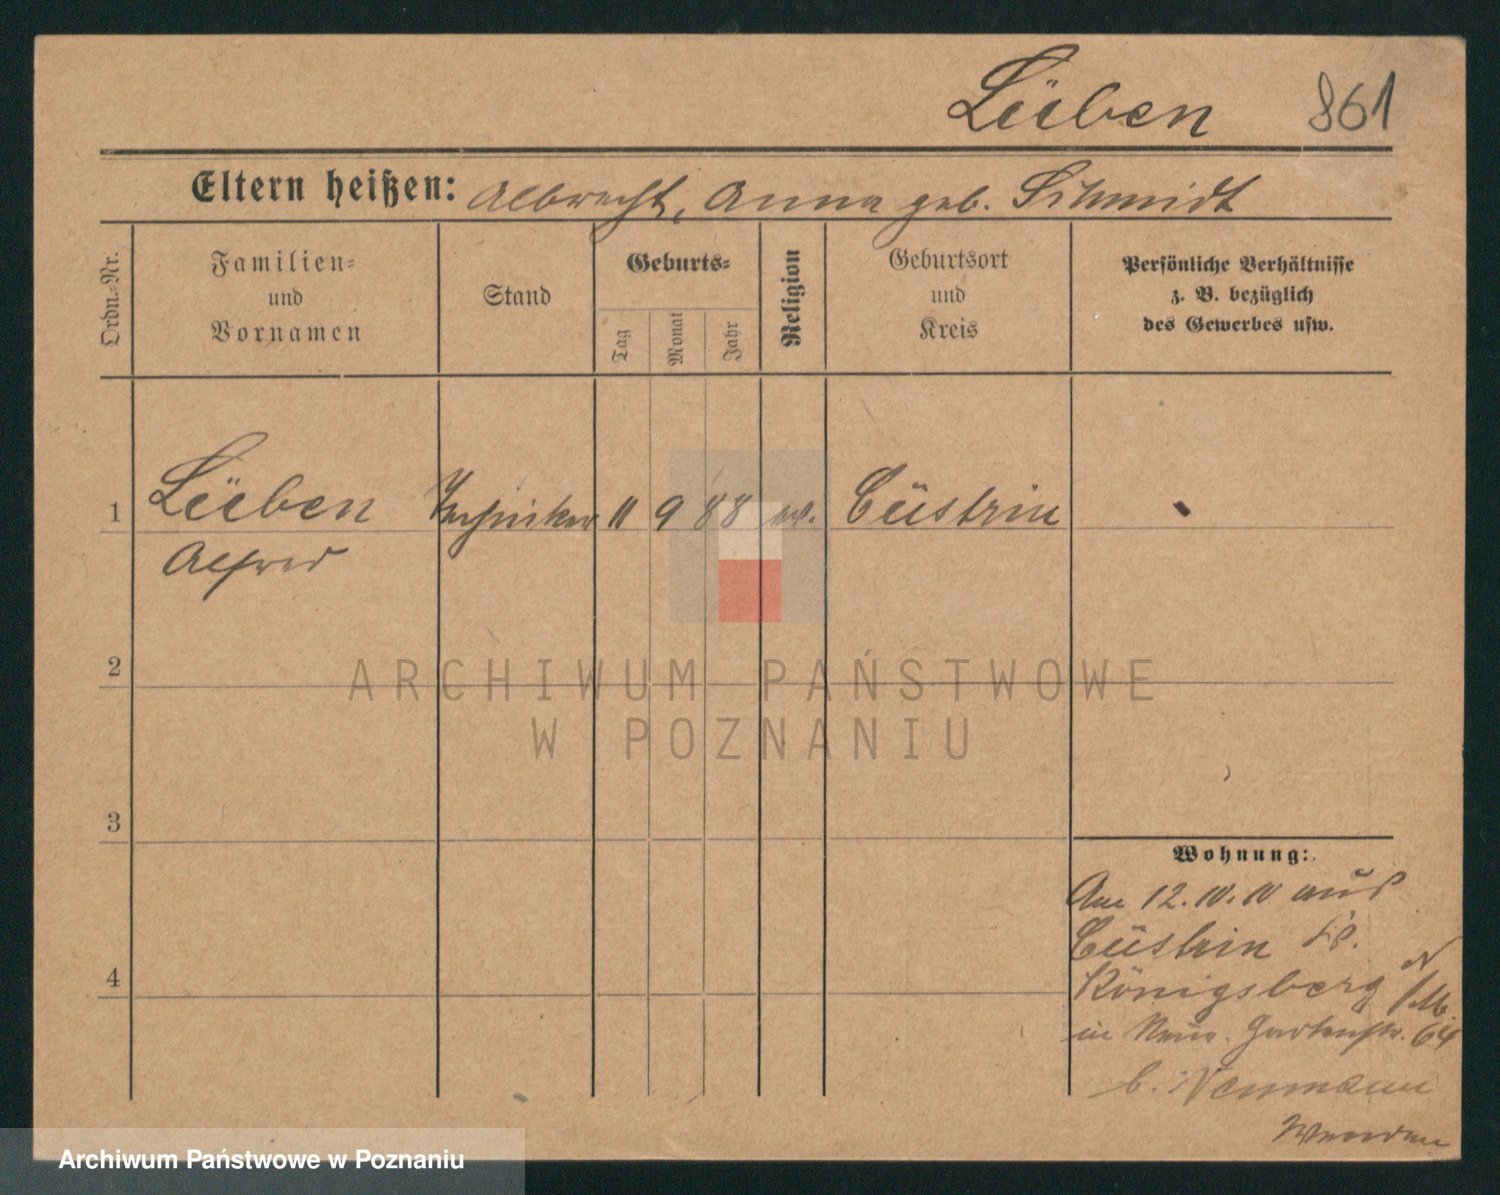 Lüben 861
Eltern heißen: Albrecht, Anna geb. Schmidt
Ordn.-Nr.
Familien-
und
Vornamen
Stand
Geburts-
Tag
Monat
Jahr
Religion
Geburtsort
und
Kreis
Persönliche Verhältnisse
z. B. bezüglich
des Gewerbes usw.
1 Lüben Techniker 11 9 88 ev. Cüstrin
Alfred
2
3
4
Wohnung:
Am 12.10.10 aus
Cüstrin Kr.
Königsberg N/M.
in Gartenstr. 64
b. Neumann
ARCHIWUM PAŃSTWOWE
W POZNANIU
Archiwum Państwowe w Poznaniu